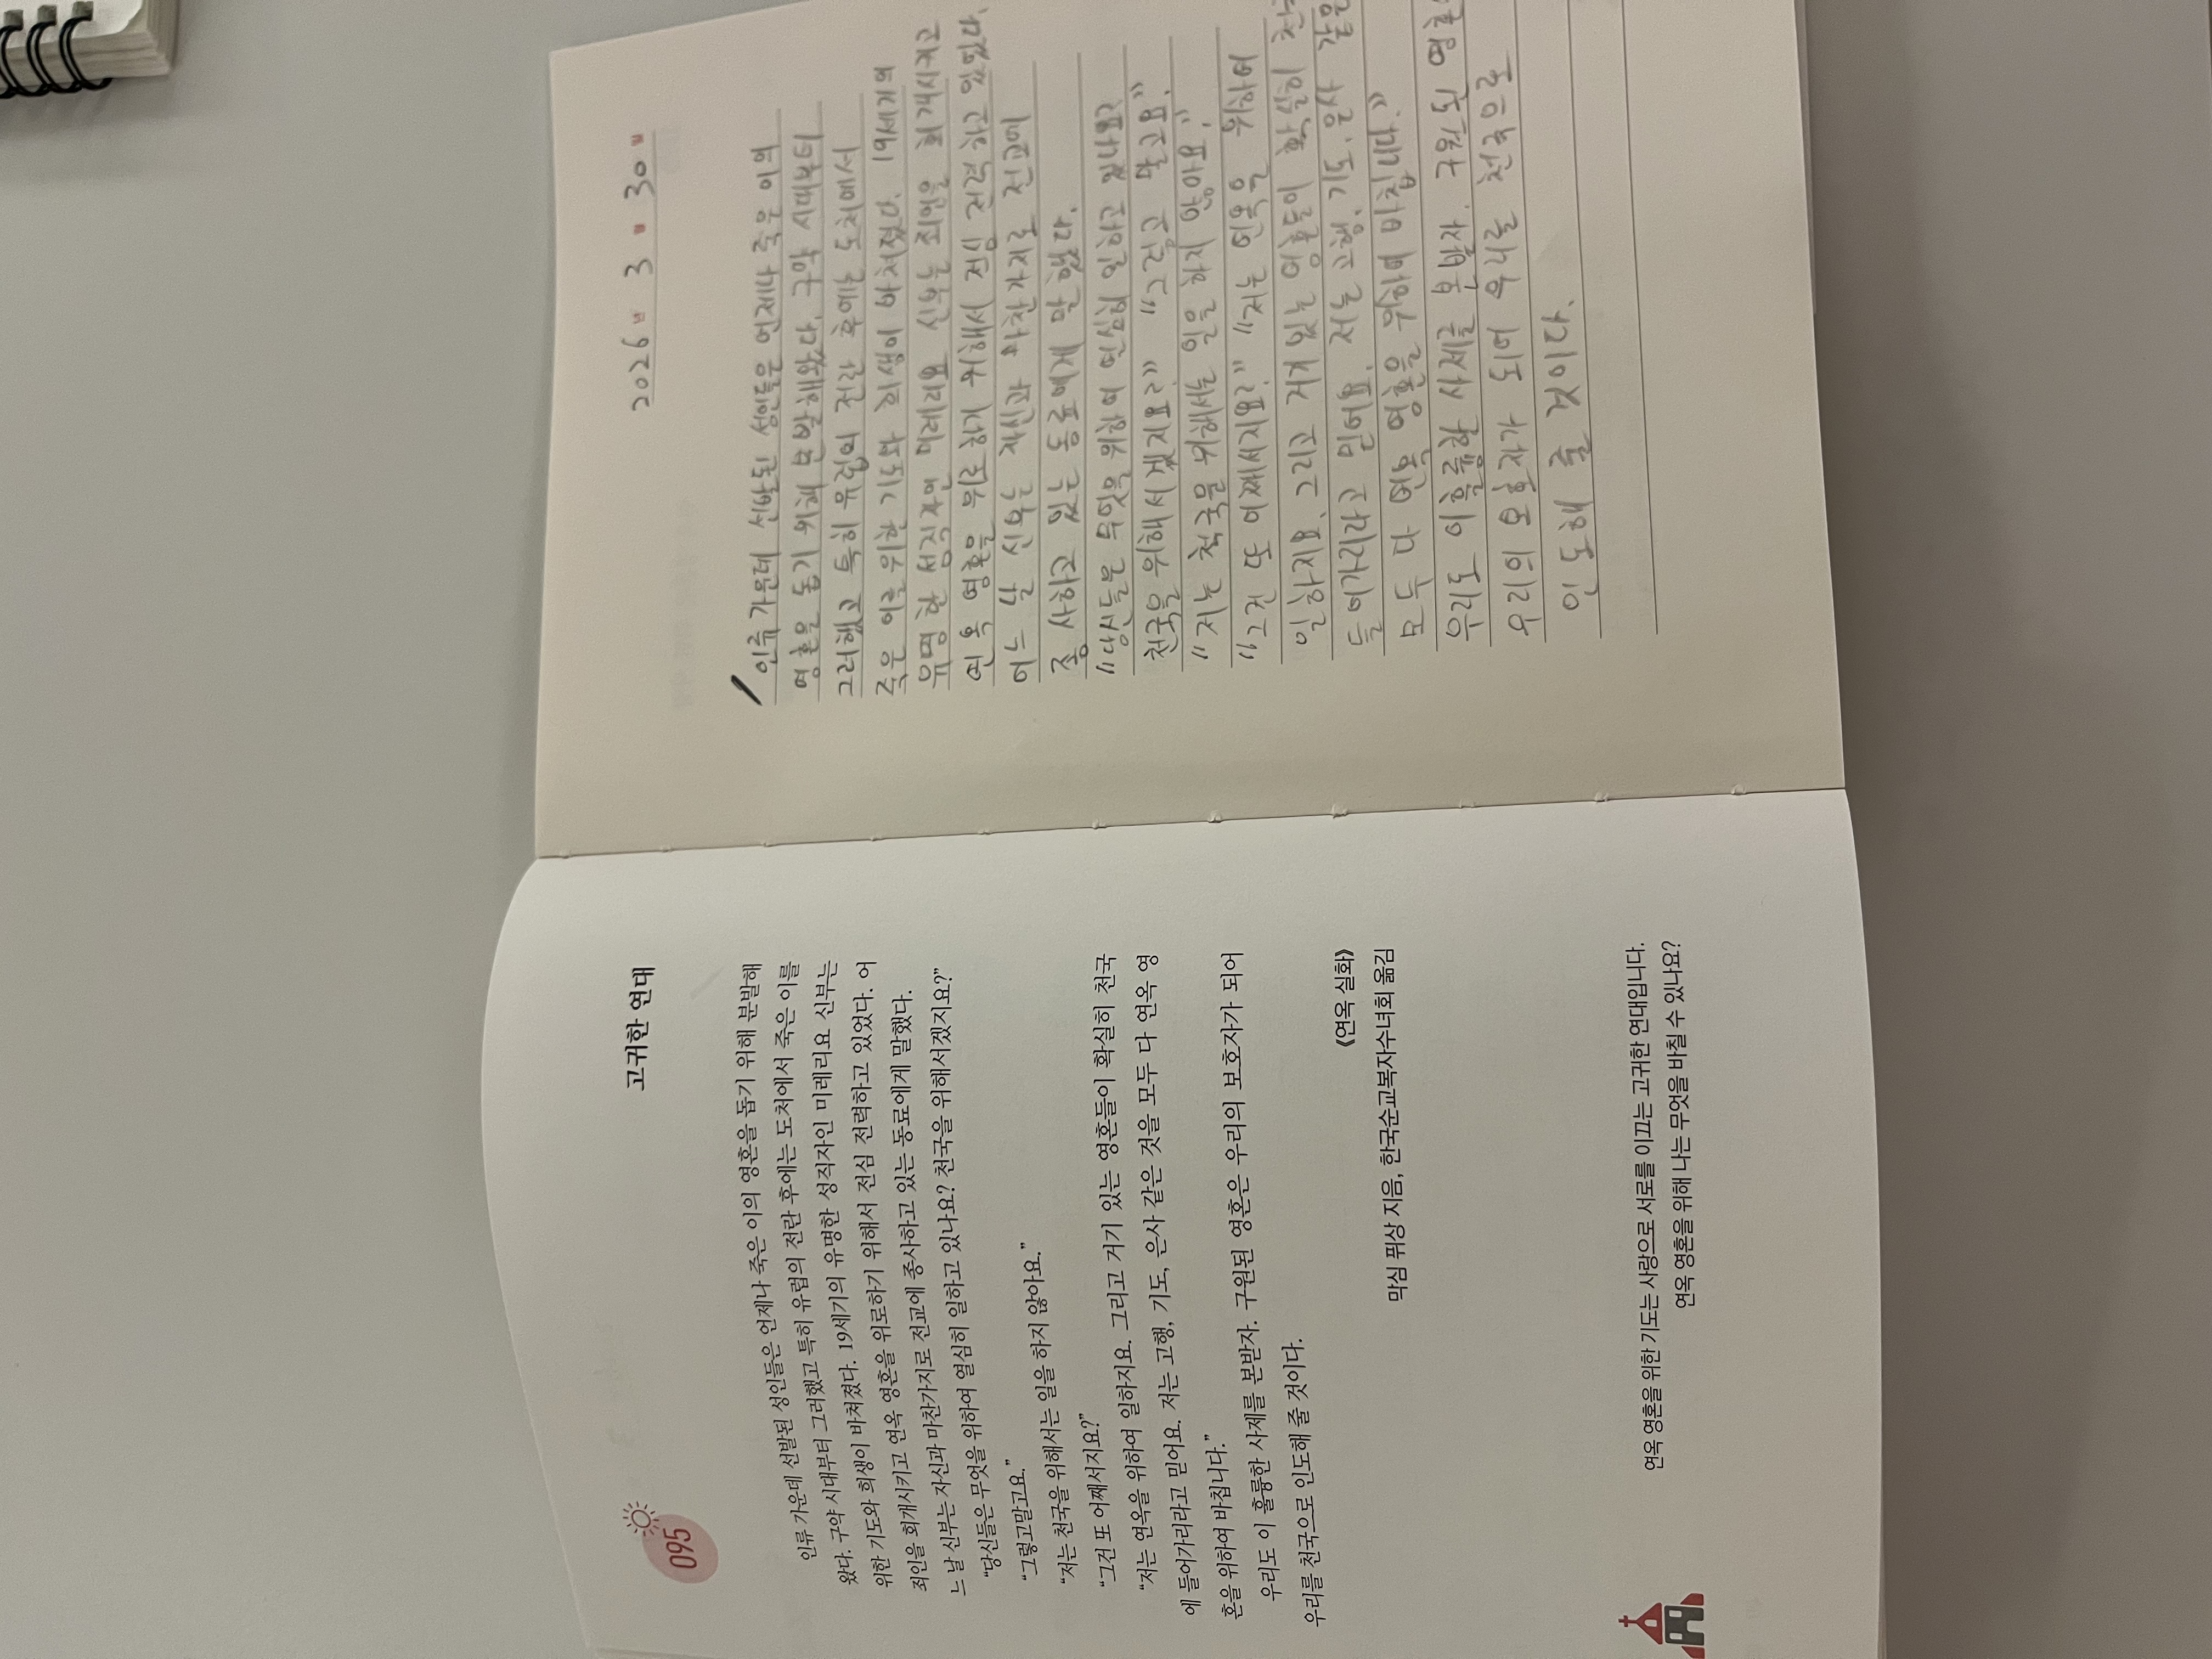 095
고귀한 연대
인류 가운데 선발된 성인들은 언제나 죽은 이의 영혼을 돕기 위해 분발해
왔다. 구약 시대부터 그러했고 특히 유럽의 전란 후에는 도처에서 죽은 이를
위한 기도와 희생이 바쳐졌다. 19세기의 유명한 성직자인 미레리요 신부는
죄인을 회개시키고 연옥 영혼을 위로하기 위해서 전심 전력하고 있었다. 어
느 날 신부는 자신과 마찬가지로 전교에 종사하고 있는 동료에게 말했다.
“당신들은 무엇을 위하여 열심히 일하고 있나요? 천국을 위해서겠지요?”
“그렇고말고요.”
“저는 천국을 위해서는 일을 하지 않아요.”
“그건 또 어째서지요?”
“저는 연옥을 위하여 일하지요. 그리고 거기 있는 영혼들이 확실히 천국
에 들어가리라고 믿어요. 저는 고행, 기도, 은사 같은 것을 모두 다 연옥 영
혼을 위하여 바칩니다.”
우리도 이 훌륭한 사제를 본받자. 구원된 영혼은 우리의 보호자가 되어
우리를 천국으로 인도해 줄 것이다.
《연옥 실화》
막심 퓌상 지음, 한국순교복자수녀회 옮김
연옥 영혼을 위한 기도는 사랑으로 서로를 이끄는 고귀한 연대입니다.
연옥 영혼을 위해 나는 무엇을 바칠 수 있나요?
2026 3 30
인류 가운데 선발된 성인들은 언제나 죽은 이의
영혼을 돕기 위해 분발해왔다. 구약 시대부터
그러했고 특히 유럽의 전란 후에는 도처에서
죽은 이를 위한 기도와 희생이 바쳐졌다. 19세기의
유명한 성직자인 미레리요 신부는 죄인을 회개시키고
연옥 영혼을 위로하기 위해서 전심 전력하고 있었다.
어느 날 신부는 자신과 마찬가지로 전교에
종사하고 있는 동료에게 말했다.
“당신들은 무엇을 위하여 열심히 일하고 있나요?
천국을 위해서겠지요?” “그렇고 말고요”
“저는 천국을 위해서는 일을 하지 않아요.”
“그건 또 어째서지요?” “저는 연옥을 위하여
일하지요. 그리고 거기 있는 영혼들이 확실히
들어가리라고 믿어요. 저는 고행, 기도, 은사 같은
모두 다 연옥 영혼을 위하여 바칩니다.”
우리도 이 훌륭한 사제를 본받자. 구원된 영혼
우리의 보호자가 되어 우리를 천국으로
인도해 줄 것이다.